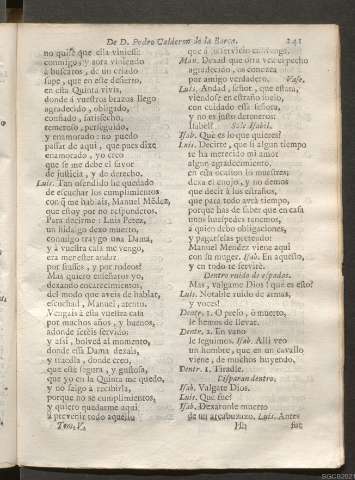 De D. Pedro Calderon de la Barca. 241
no quise que esta viniesse
conmigo, y aora viniendo
à buscaros, de un criado
supe, que en este desierto,
en esta Quinta vivis,
donde à vuestros brazos llego
agradecido, obligado,
confiado, satisfecho,
temeroso, perseguido,
y enamorado: no puedo
passar de aqui, que pues dixe
enamorado, yo creo
que se me debe el favor
de justicia, y de derecho.
Luis. Tan ofendido he quedado
de escuchar los cumplimientos
con q me hablais, Manuel Mẽdez,
que estoy por no responderos.
Para decirme: Luis Perez,
un hidalgo dexo muerto,
conmigo traygo una Dama,
y à vuestra casa me vengo,
era menester andar
por frasses, y por rodeos?
Mas quiero enseñaros yo,
dexando encarecimientos,
del modo que aveis de hablar,
escuchad, Manuel, atento.
Vengais à esta vuestra casa
por muchos años, y buenos,
adonde sereis servido:
y assi, bolved al momento,
donde essa Dama dexais,
y traedla, donde creo,
que estè segura, y gustosa,
que yo en la Quinta me quedo,
y no salgo à recibirla,
porque no se cumplimientos,
y quiero quedarme aqui
à prevenir todo aquello
que à su servicio
Man. Dexad que otra vez el pecho
agradecido, os conozca
por amigo verdadero. Vase.
Luis. Andad, señor, que estarà,
viendose en estraño suelo,
con cuidado essa señora,
y no es justo deteneros:
Isabèl? Sale Isabèl.
Isab. Què es lo que quieres?
Luis. Decirte, que si algun tiempo
te ha merecido mi amor
algun agradecimiento,
en esta ocasion lo muestres:
dexa el enojo, y no demos
que decir à los estraños,
que para todo avrà tiempo,
porque has de saber que en casa
unos huespedes tenemos,
à quien debo obligaciones,
y pagarselas pretendo:
Manuel Mendez viene aqui
con su muger. Isab. En aquesso,
y en todo te servirè.
Dentro ruido de espadas.
Mas, valgame Dios! què es esto?
Luis. Notable ruido de armas,
y voces!
Dentr. 1. O preso, ò muerto,
le hemos de llevar.
Dentr. 2. En vano
le seguimos. Isab. Alli veo
un hombre, que en un cavallo
viene, de muchos huyendo.
Dentr. 1. Tiradle.
Disparan dentro.
Isab. Valgate Dios.
Luis. Què fue?
Isab. Dexaronle muerto
de un arcabuzazo. Luis. Antes
Tom. V. Hh fue